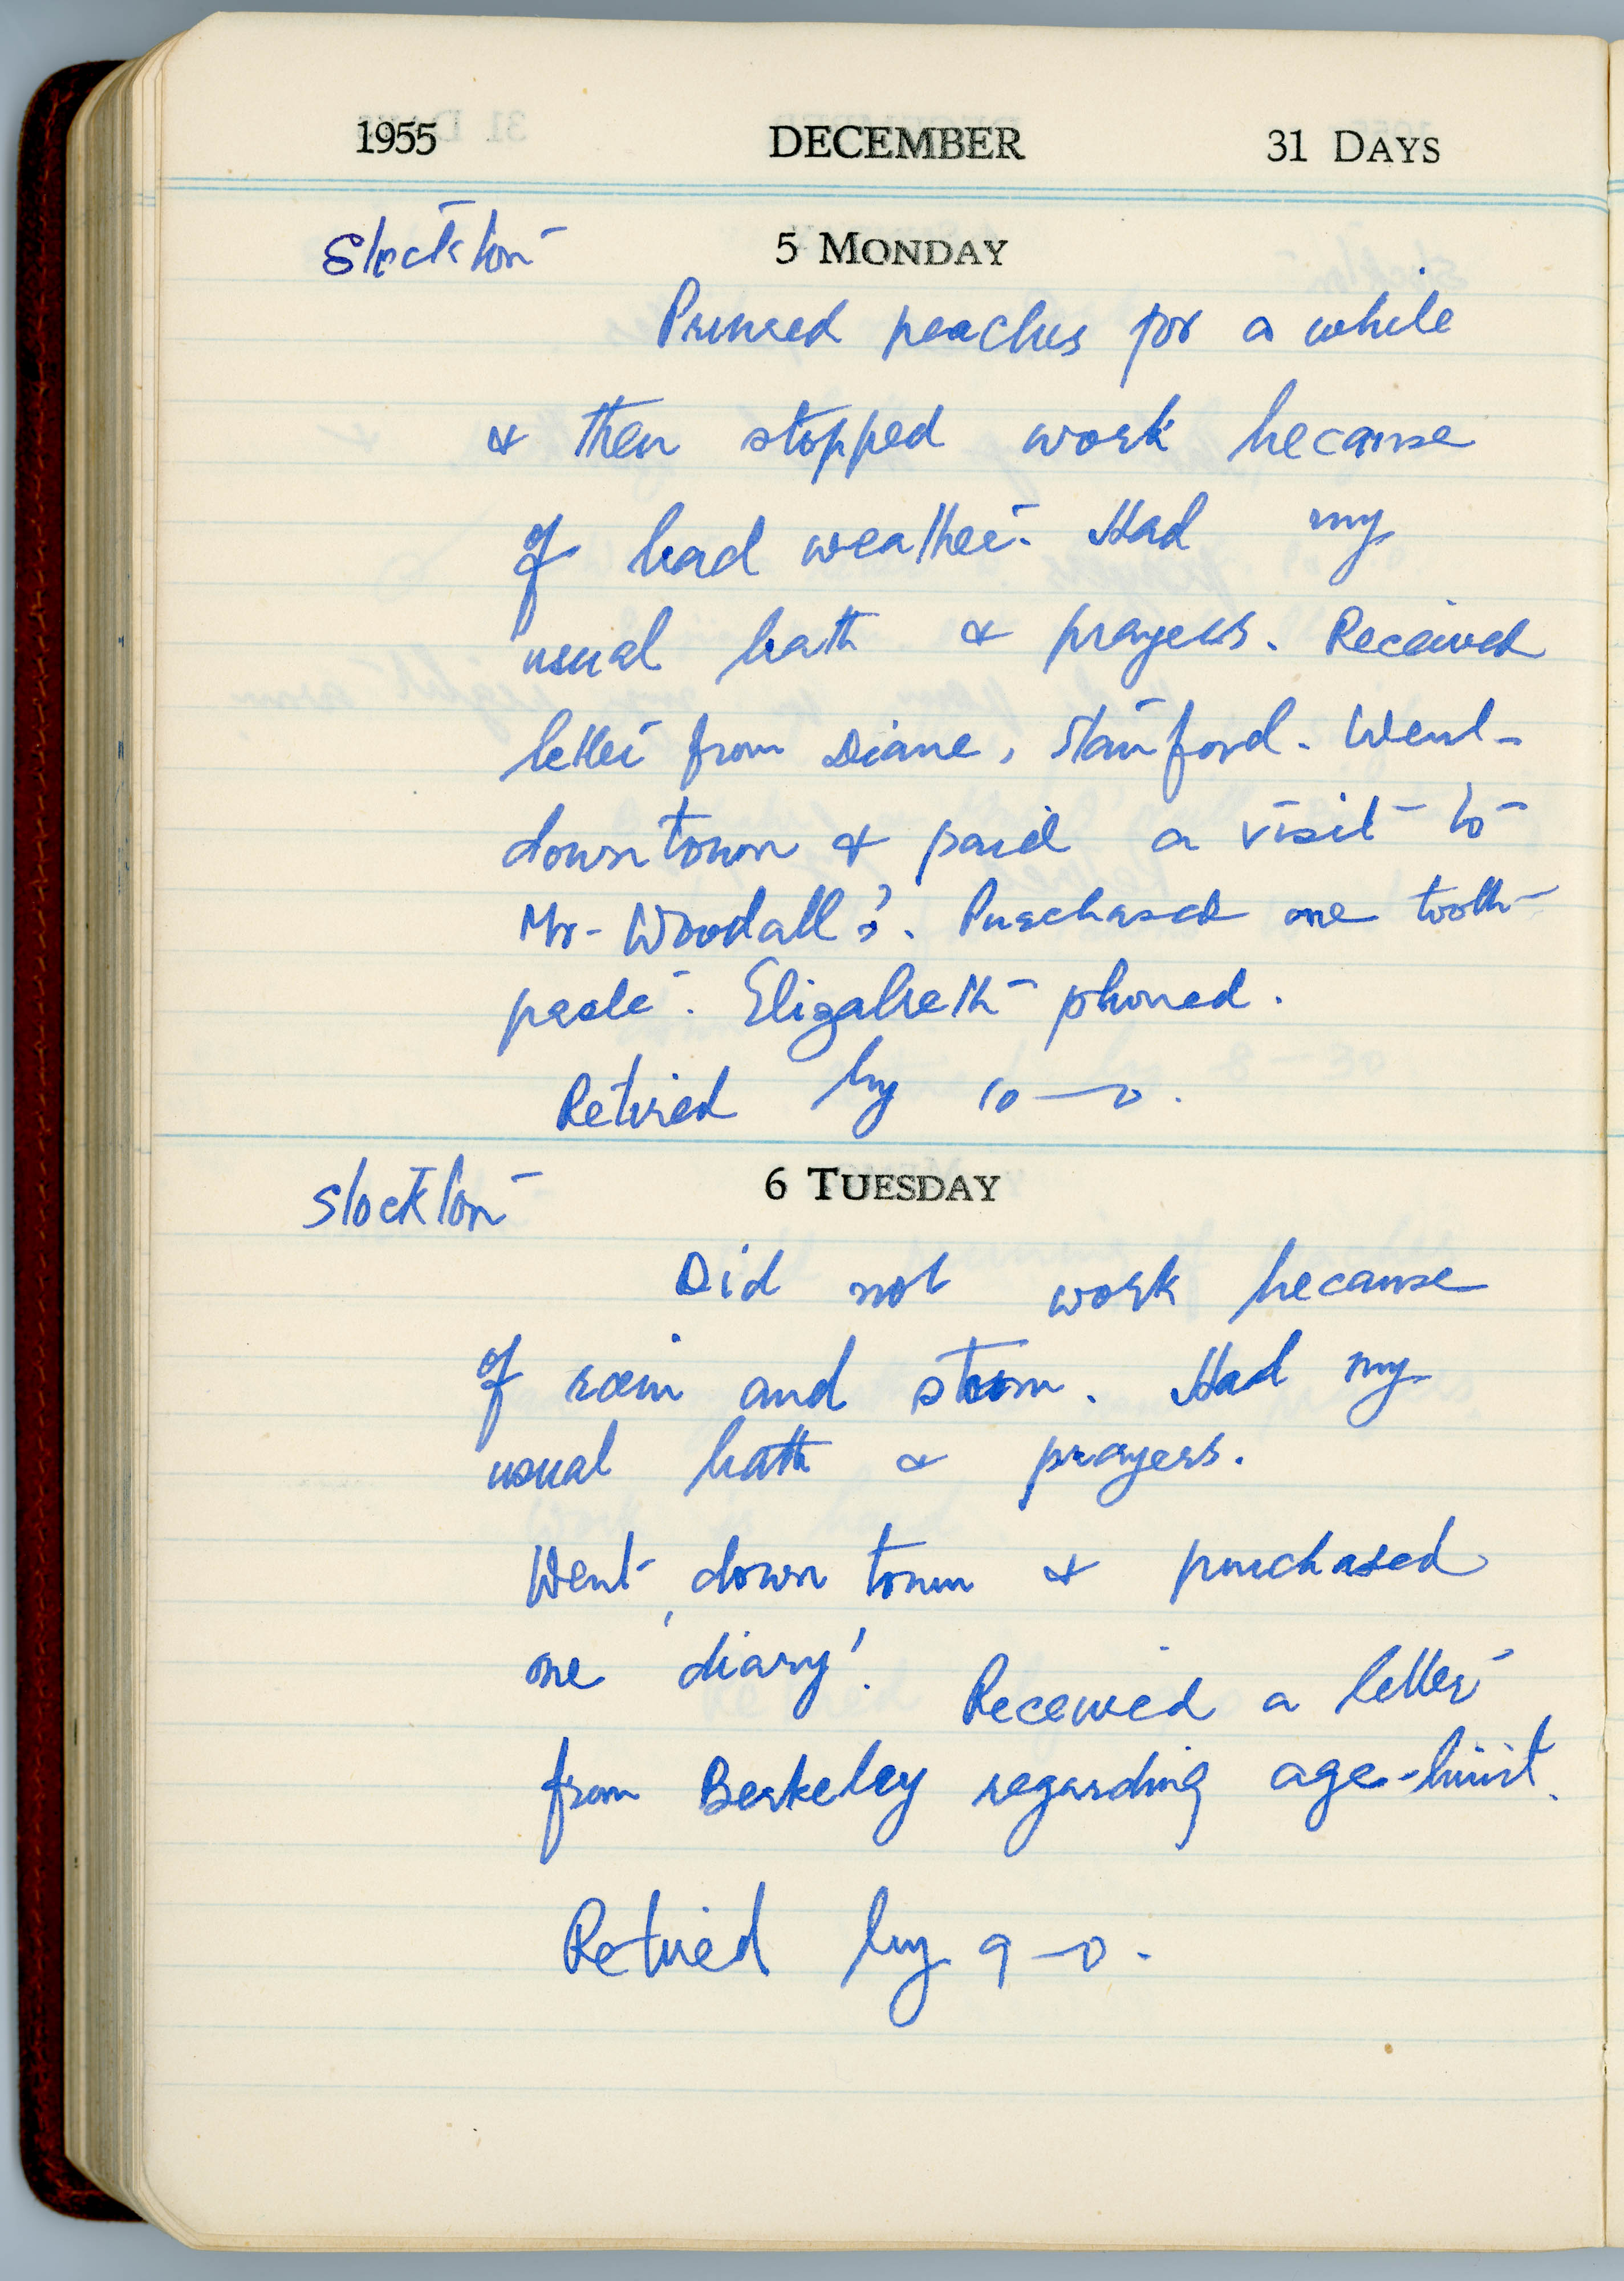 1955 DECEMBER 31 DAYS
Stockton 5 MONDAY
Pruned peaches for a while
& then stopped work because
of bad weather. Had my
usual bath & prayers. Received
letter from Diane, Stanford. Went
downtown & paid a visit to
Mr. Woodall's. Purchased one tooth-
paste. Elizabeth phoned.
Retired by 10—0.
Stockton 6 TUESDAY
Did not work because
of rain and storm. Had my
usual bath & prayers.
Went down town & purchased
one 'diary'. Received a letter
from Berkeley regarding age-limit.
Retired by 9—0.